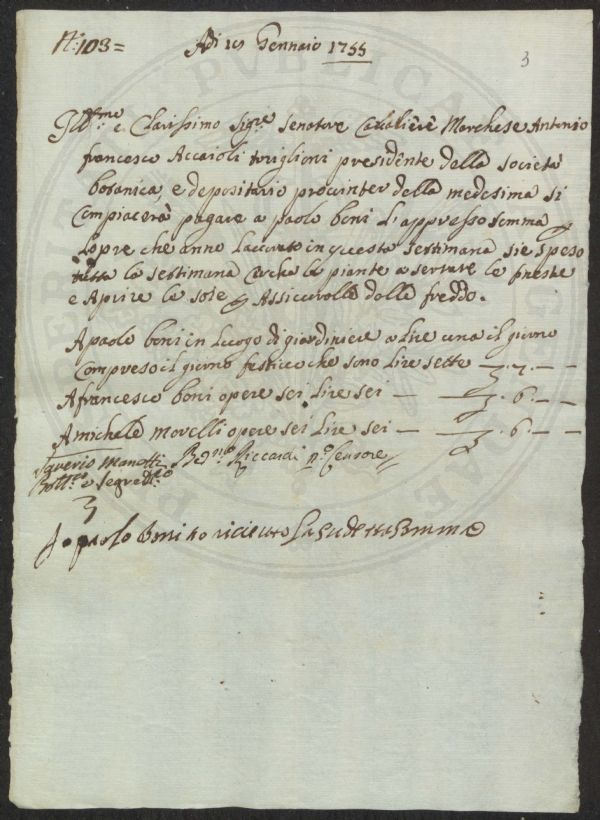 N: 103 =
Adi 19 Gennaio 1755
3
Ill.mo e Clarissimo Sig.re Senatore Cavaliere Marchese Antonio
francesco Accaioli toriglioni presidente della società
botanica, e depositario prointer della medesima si
Compiacerà pagare a paolo boni l'appresso somma p
lopre che anno lavorato in questa settimana si è speso
tutta la settimana Cercha le piante a serrare le fineste
e Aprire le sole p Assicurolle dalle freddo.
A paolo boni in luogo di giardiniere a lire una il giorno
Compreso il giorno festivo che sono lire sette — 7. — —
A francesco boni opere sei lire sei — 6. — —
A michele morelli opere sei lire sei — 6. — —
Saverio Manetti
Bern.no Riccardi p.o Censore
Dott.re e Segret.rio
Io paolo boni ho riceuto la sudetta somma